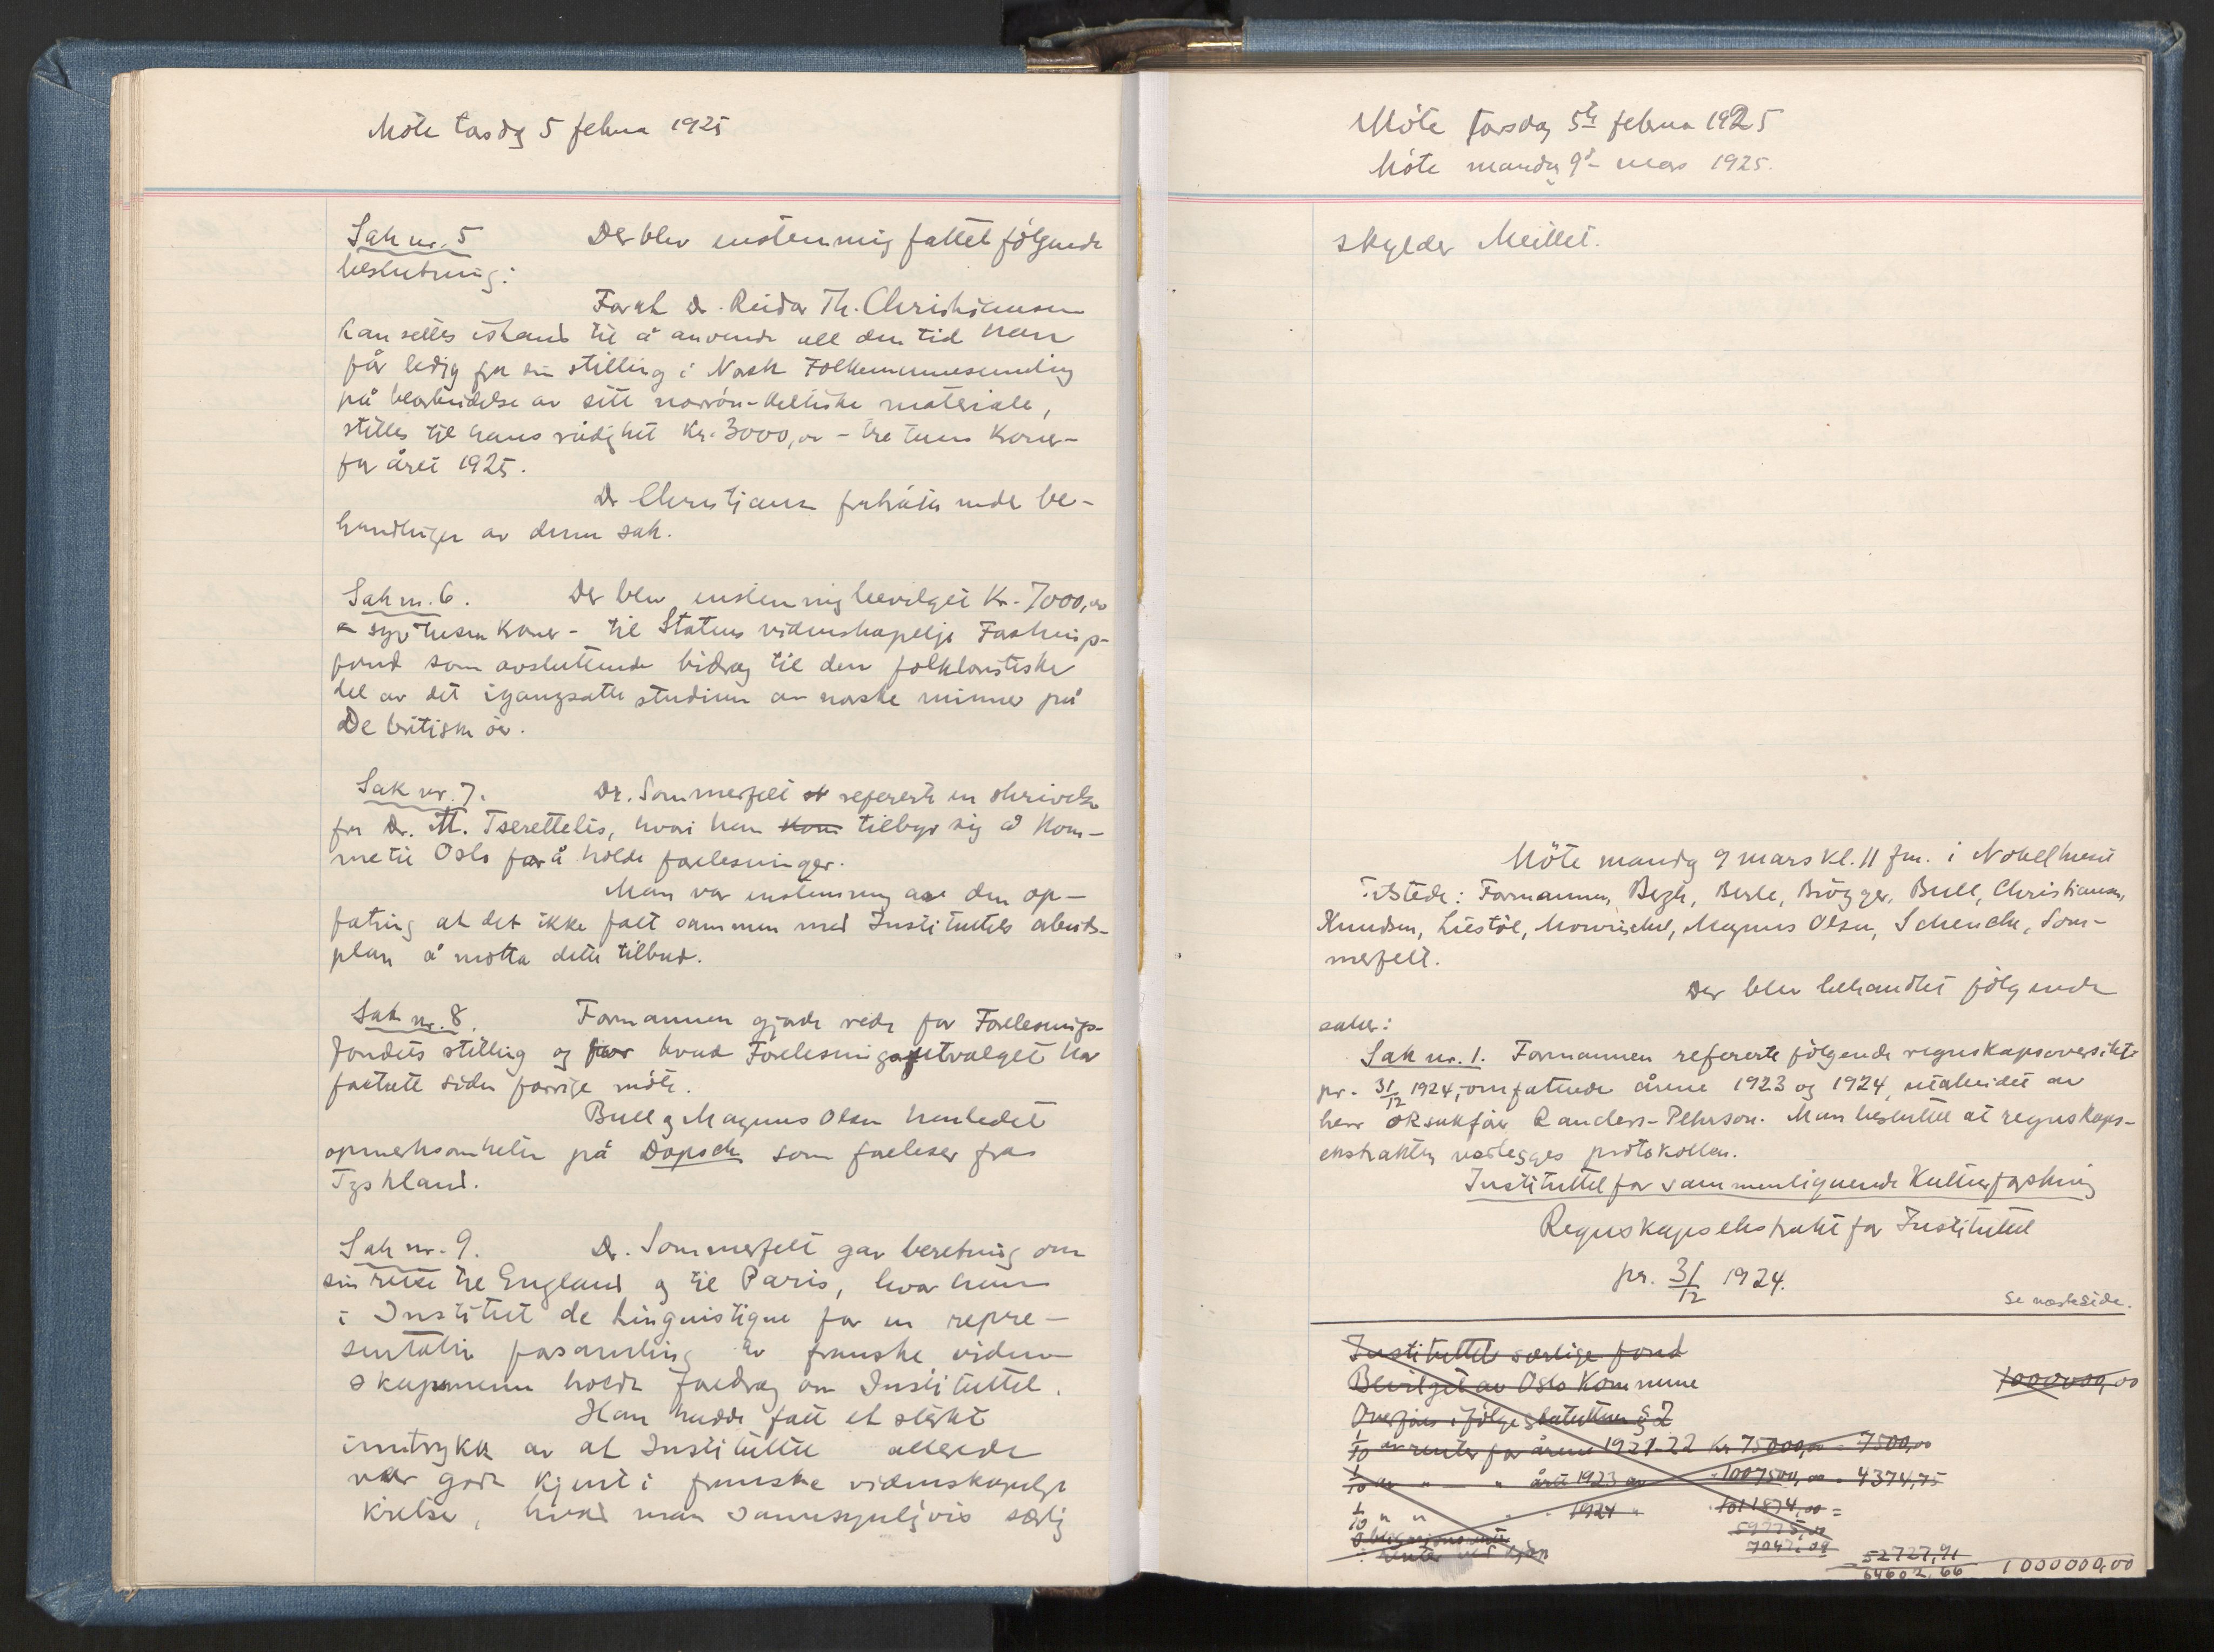 Möte torsdag 5 februar 1925
Sak nr. 5 Der blev enstemmig fattet følgende
beslutning:
Forat Dr. Reidar Th. Christiansen
kan settes istand til å anvende all den tid han
får ledig fra sin stilling i Norsk Folkeminnesamling
på bearbeidelse av sitt norrön-keltiske materiale,
stilles til hans rådighet Kr. 3000,00 - tre tusen kroner -
for året 1925.
Dr Christiansen fratrådte under be-
handlingen av denne sak.
Sak nr. 6. Der blev enstemmig bevilget Kr. 7000,00
- syv tusen kroner - til Statens videnskapelige Forsknings-
fond som avsluttende bidrag til den folkloristiske
del av det igangsatte studium av norske minner på
De britiske öer.
Sak nr. 7. Dr. Sommerfelt refererte en skrivelse
fra Dr. M. Tserettelis, hvori han kom tilbyr sig å kom-
me til Oslo for å holde forelesninger.
Man var enstemmig av den op-
fatning at det ikke falt sammen med Instituttets arbeids-
plan å motta dette tilbud.
Sak nr. 8. Formannen gjorde rede for Forelesnings-
fondets stilling og for hvad Forelesningsutvalget har
foretatt siden forrige möte.
Bull og Magnus Olsen henledet
opmerksomheten på Dopsch som foreleser fra
Tyskland.
Sak nr. 9. Dr. Sommerfelt gav beretning om
sin reise til England og til Paris, hvor han
i Institut de Linguistique for en repre-
sentativ forsamling av franske viden-
skapsmenn holdt foredrag om Instituttet.
Han hadde fått et sterkt
inntrykk av at Instituttet allerede
var godt kjent i franske videnskapelige
kretser, hvad man sannsynligvis særlig
Möte torsdag 5te februar 1925
Möte mandag 9de mars 1925.
skylder Meillet.
Möte mandag 9 mars kl. 11 fm. i Nobelhuset
Tilstede: Formannen, Bergh, Berle, Brögger, Bull, Christiansen,
Knudsen, Liestöl, Mowinckel, Magnus Olsen, Schencke, Som-
merfelt.
Der blev behandlet fölgende
saker:
Sak nr. 1. Formannen refererte fölgende regnskapsoversikt
pr. 31/12 1924, omfattende årene 1923 og 1924, utarbeidet av
herr Randers-Pehrson. Man besluttet at regnskaps-
ekstrakten vedlegges protokollen.
Instituttet for sammenlignende Kulturforskning
Regnskapsekstrakt for Instituttet
pr. 31/12 1924.
Se næste side.
Instituttets særlige fond
Bevilget av Oslo Kommune 1000000,00
Overföres ifölge statuttene § 2
1/10 av renter for årene 1921-22 Kr 75000,00 = 7500,00
1/10 av " " året 1923 av 1007500,00 = 4374,75
1/10 " " " 1924 " 1011874,00 =
59775,00
7042,09
52727,91
64602,66 1000000,00